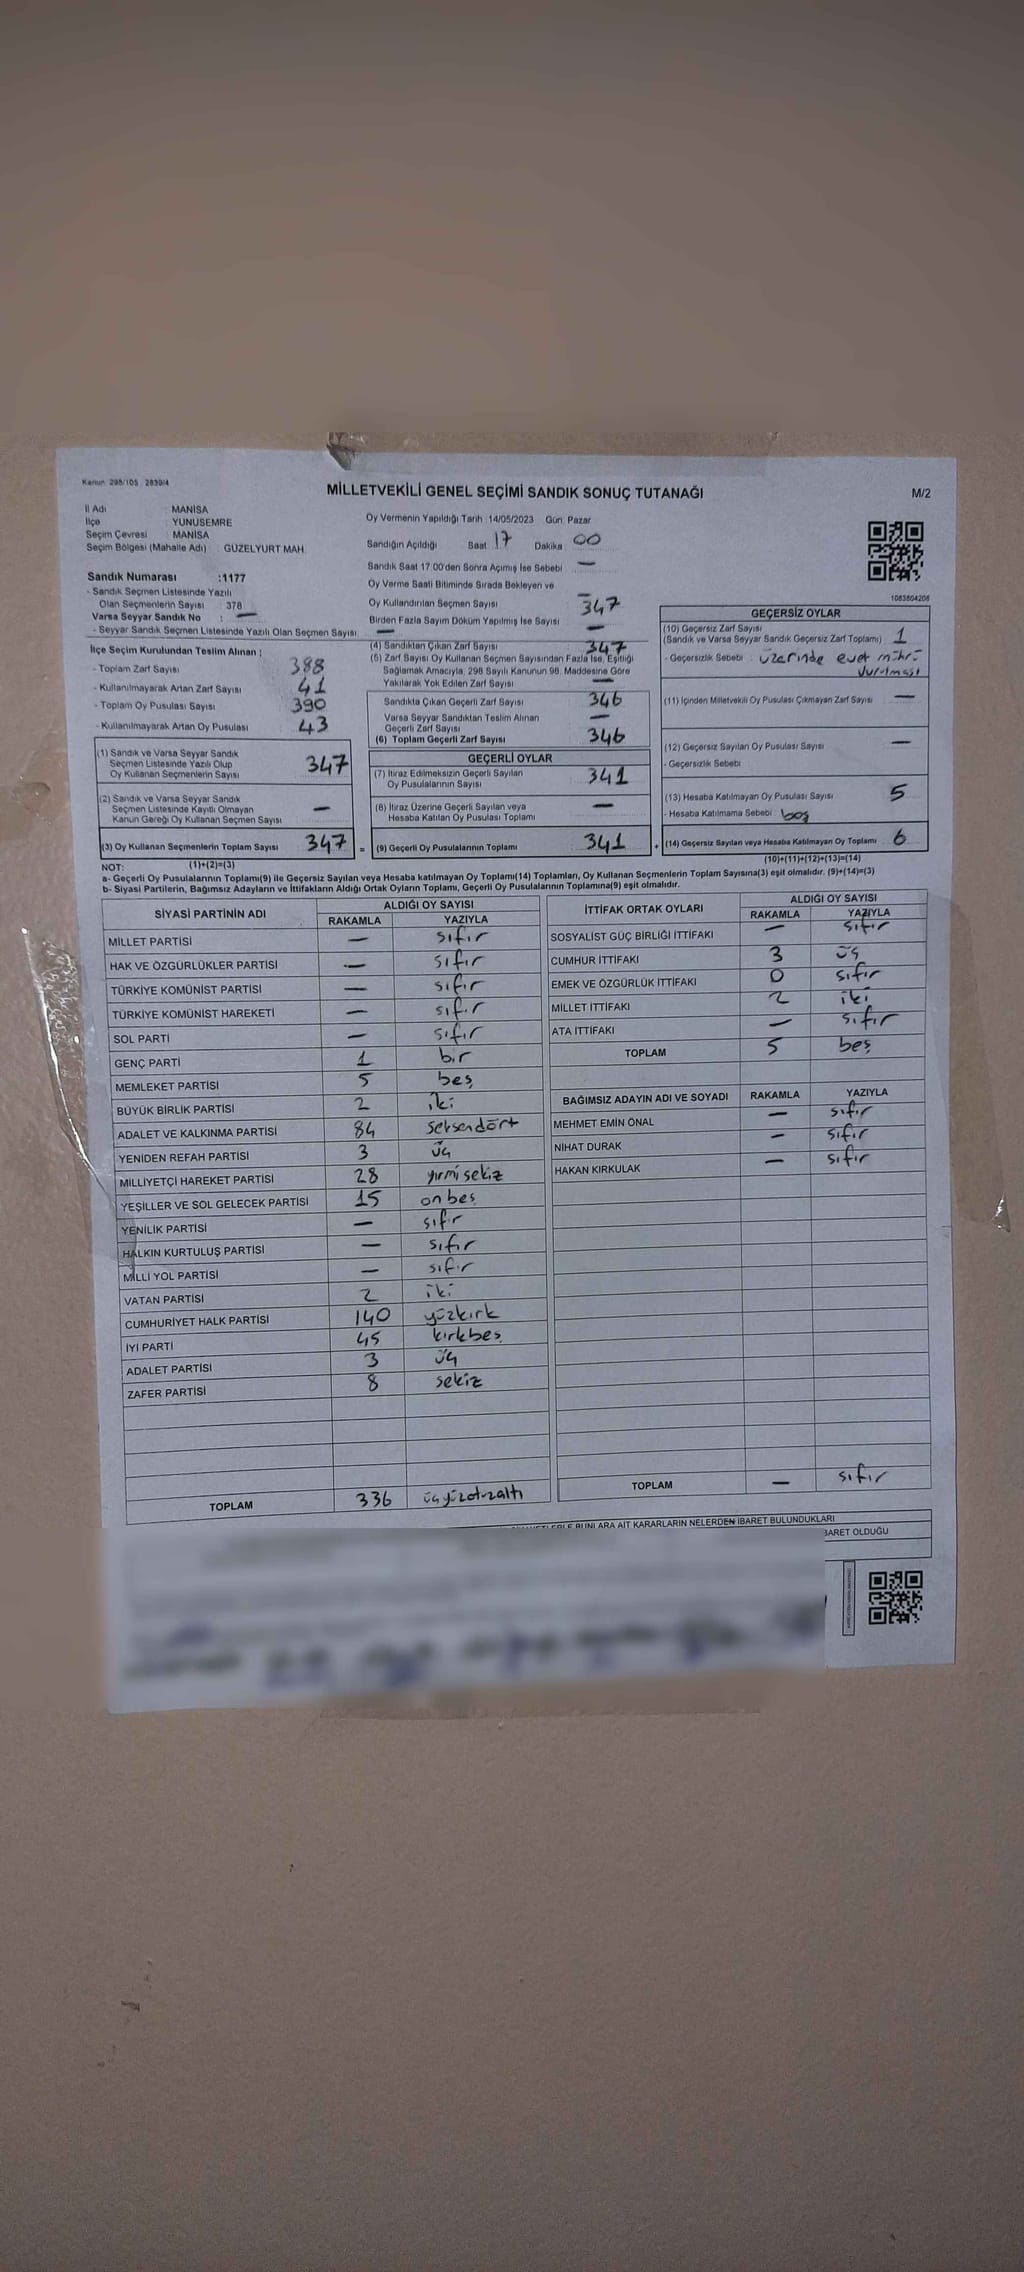 Kanun 298/105 2839/4
MİLLETVEKİLİ GENEL SEÇİMİ SANDIK SONUÇ TUTANAĞI
M/2
İl Adı MANİSA
İlçe YUNUSEMRE
Seçim Çevresi MANİSA
Seçim Bölgesi (Mahalle Adı) : GÜZELYURT MAH.
Sandık Numarası :1177
- Sandık Seçmen Listesinde Yazılı
Olan Seçmenlerin Sayısı : 378
Varsa Seyyar Sandık No : —
- Seyyar Sandık Seçmen Listesinde Yazılı Olan Seçmen Sayısı : —
İlçe Seçim Kurulundan Teslim Alınan ;
- Toplam Zarf Sayısı 388
- Kullanılmayarak Artan Zarf Sayısı 41
- Toplam Oy Pusulası Sayısı 390
- Kullanılmayarak Artan Oy Pusulası 43
(1) Sandık ve Varsa Seyyar Sandık
Seçmen Listesinde Yazılı Olup
Oy Kullanan Seçmenlerin Sayısı 347
(2) Sandık ve Varsa Seyyar Sandık
Seçmen Listesinde Kayıtlı Olmayan
Kanun Gereği Oy Kullanan Seçmen Sayısı —
(3) Oy Kullanan Seçmenlerin Toplam Sayısı 347 =
(1)+(2)=(3)
Oy Vermenin Yapıldığı Tarih :14/05/2023 Gün: Pazar
Sandığın Açıldığı Saat 17 Dakika 00
Sandık Saat 17:00'den Sonra Açılmış İse Sebebi —
Oy Verme Saati Bitiminde Sırada Bekleyen ve
Oy Kullandırılan Seçmen Sayısı —
347
Birden Fazla Sayım Döküm Yapılmış İse Sayısı —
(4) Sandıktan Çıkan Zarf Sayısı 347
(5) Zarf Sayısı Oy Kullanan Seçmen Sayısından Fazla İse, Eşitliği
Sağlamak Amacıyla, 298 Sayılı Kanunun 98. Maddesine Göre
Yakılarak Yok Edilen Zarf Sayısı —
Sandıkta Çıkan Geçerli Zarf Sayısı 346
Varsa Seyyar Sandıktan Teslim Alınan
Geçerli Zarf Sayısı —
(6) Toplam Geçerli Zarf Sayısı 346
GEÇERLİ OYLAR
(7) İtiraz Edilmeksizin Geçerli Sayılan
Oy Pusulalarının Sayısı 341
(8) İtiraz Üzerine Geçerli Sayılan veya
Hesaba Katılan Oy Pusulası Toplamı —
(9) Geçerli Oy Pusulalarının Toplamı 341 +
1083804206
GEÇERSİZ OYLAR
(10) Geçersiz Zarf Sayısı
(Sandık ve Varsa Seyyar Sandık Geçersiz Zarf Toplamı) 1
- Geçersizlik Sebebi : üzerinde evet mührü
vurulması
(11) İçinden Milletvekili Oy Pusulası Çıkmayan Zarf Sayısı —
(12) Geçersiz Sayılan Oy Pusulası Sayısı —
- Geçersizlik Sebebi
(13) Hesaba Katılmayan Oy Pusulası Sayısı 5
- Hesaba Katılmama Sebebi boş
(14) Geçersiz Sayılan veya Hesaba Katılmayan Oy Toplamı 6
(10)+(11)+(12)+(13)=(14)
NOT:
a- Geçerli Oy Pusulalarının Toplamı(9) ile Geçersiz Sayılan veya Hesaba katılmayan Oy Toplamı(14) Toplamları, Oy Kullanan Seçmenlerin Toplam Sayısına(3) eşit olmalıdır. (9)+(14)=(3)
b- Siyasi Partilerin, Bağımsız Adayların ve İttifakların Aldığı Ortak Oyların Toplamı, Geçerli Oy Pusulalarının Toplamına(9) eşit olmalıdır.
SİYASİ PARTİNİN ADI
ALDIĞI OY SAYISI
RAKAMLA YAZIYLA
MİLLET PARTİSİ — sıfır
HAK VE ÖZGÜRLÜKLER PARTİSİ — sıfır
TÜRKİYE KOMÜNİST PARTİSİ — sıfır
TÜRKİYE KOMÜNİST HAREKETİ — sıfır
SOL PARTİ — sıfır
GENÇ PARTİ 1 bir
MEMLEKET PARTİSİ 5 beş
BÜYÜK BİRLİK PARTİSİ 2 iki
ADALET VE KALKINMA PARTİSİ 84 seksendört
YENİDEN REFAH PARTİSİ 3 üç
MİLLİYETÇİ HAREKET PARTİSİ 28 yirmisekiz
YEŞİLLER VE SOL GELECEK PARTİSİ 15 onbeş
YENİLİK PARTİSİ — sıfır
HALKIN KURTULUŞ PARTİSİ — sıfır
MİLLİ YOL PARTİSİ — sıfır
VATAN PARTİSİ 2 iki
CUMHURİYET HALK PARTİSİ 140 yüzkırk
İYİ PARTİ 45 kırkbeş
ADALET PARTİSİ 3 üç
ZAFER PARTİSİ 8 sekiz
TOPLAM 336 üçyüzotuzaltı
İTTİFAK ORTAK OYLARI
ALDIĞI OY SAYISI
RAKAMLA YAZIYLA
SOSYALİST GÜÇ BİRLİĞİ İTTİFAKI — sıfır
CUMHUR İTTİFAKI 3 üç
EMEK VE ÖZGÜRLÜK İTTİFAKI 0 sıfır
MİLLET İTTİFAKI 2 iki
ATA İTTİFAKI — sıfır
TOPLAM 5 beş
BAĞIMSIZ ADAYIN ADI VE SOYADI RAKAMLA YAZIYLA
MEHMET EMİN ÖNAL — sıfır
NİHAT DURAK — sıfır
HAKAN KIRKULAK — sıfır
TOPLAM — sıfır
BUNLARA AİT KARARLARIN NELERDEN İBARET BULUNDUKLARI
İBARET OLDUĞU